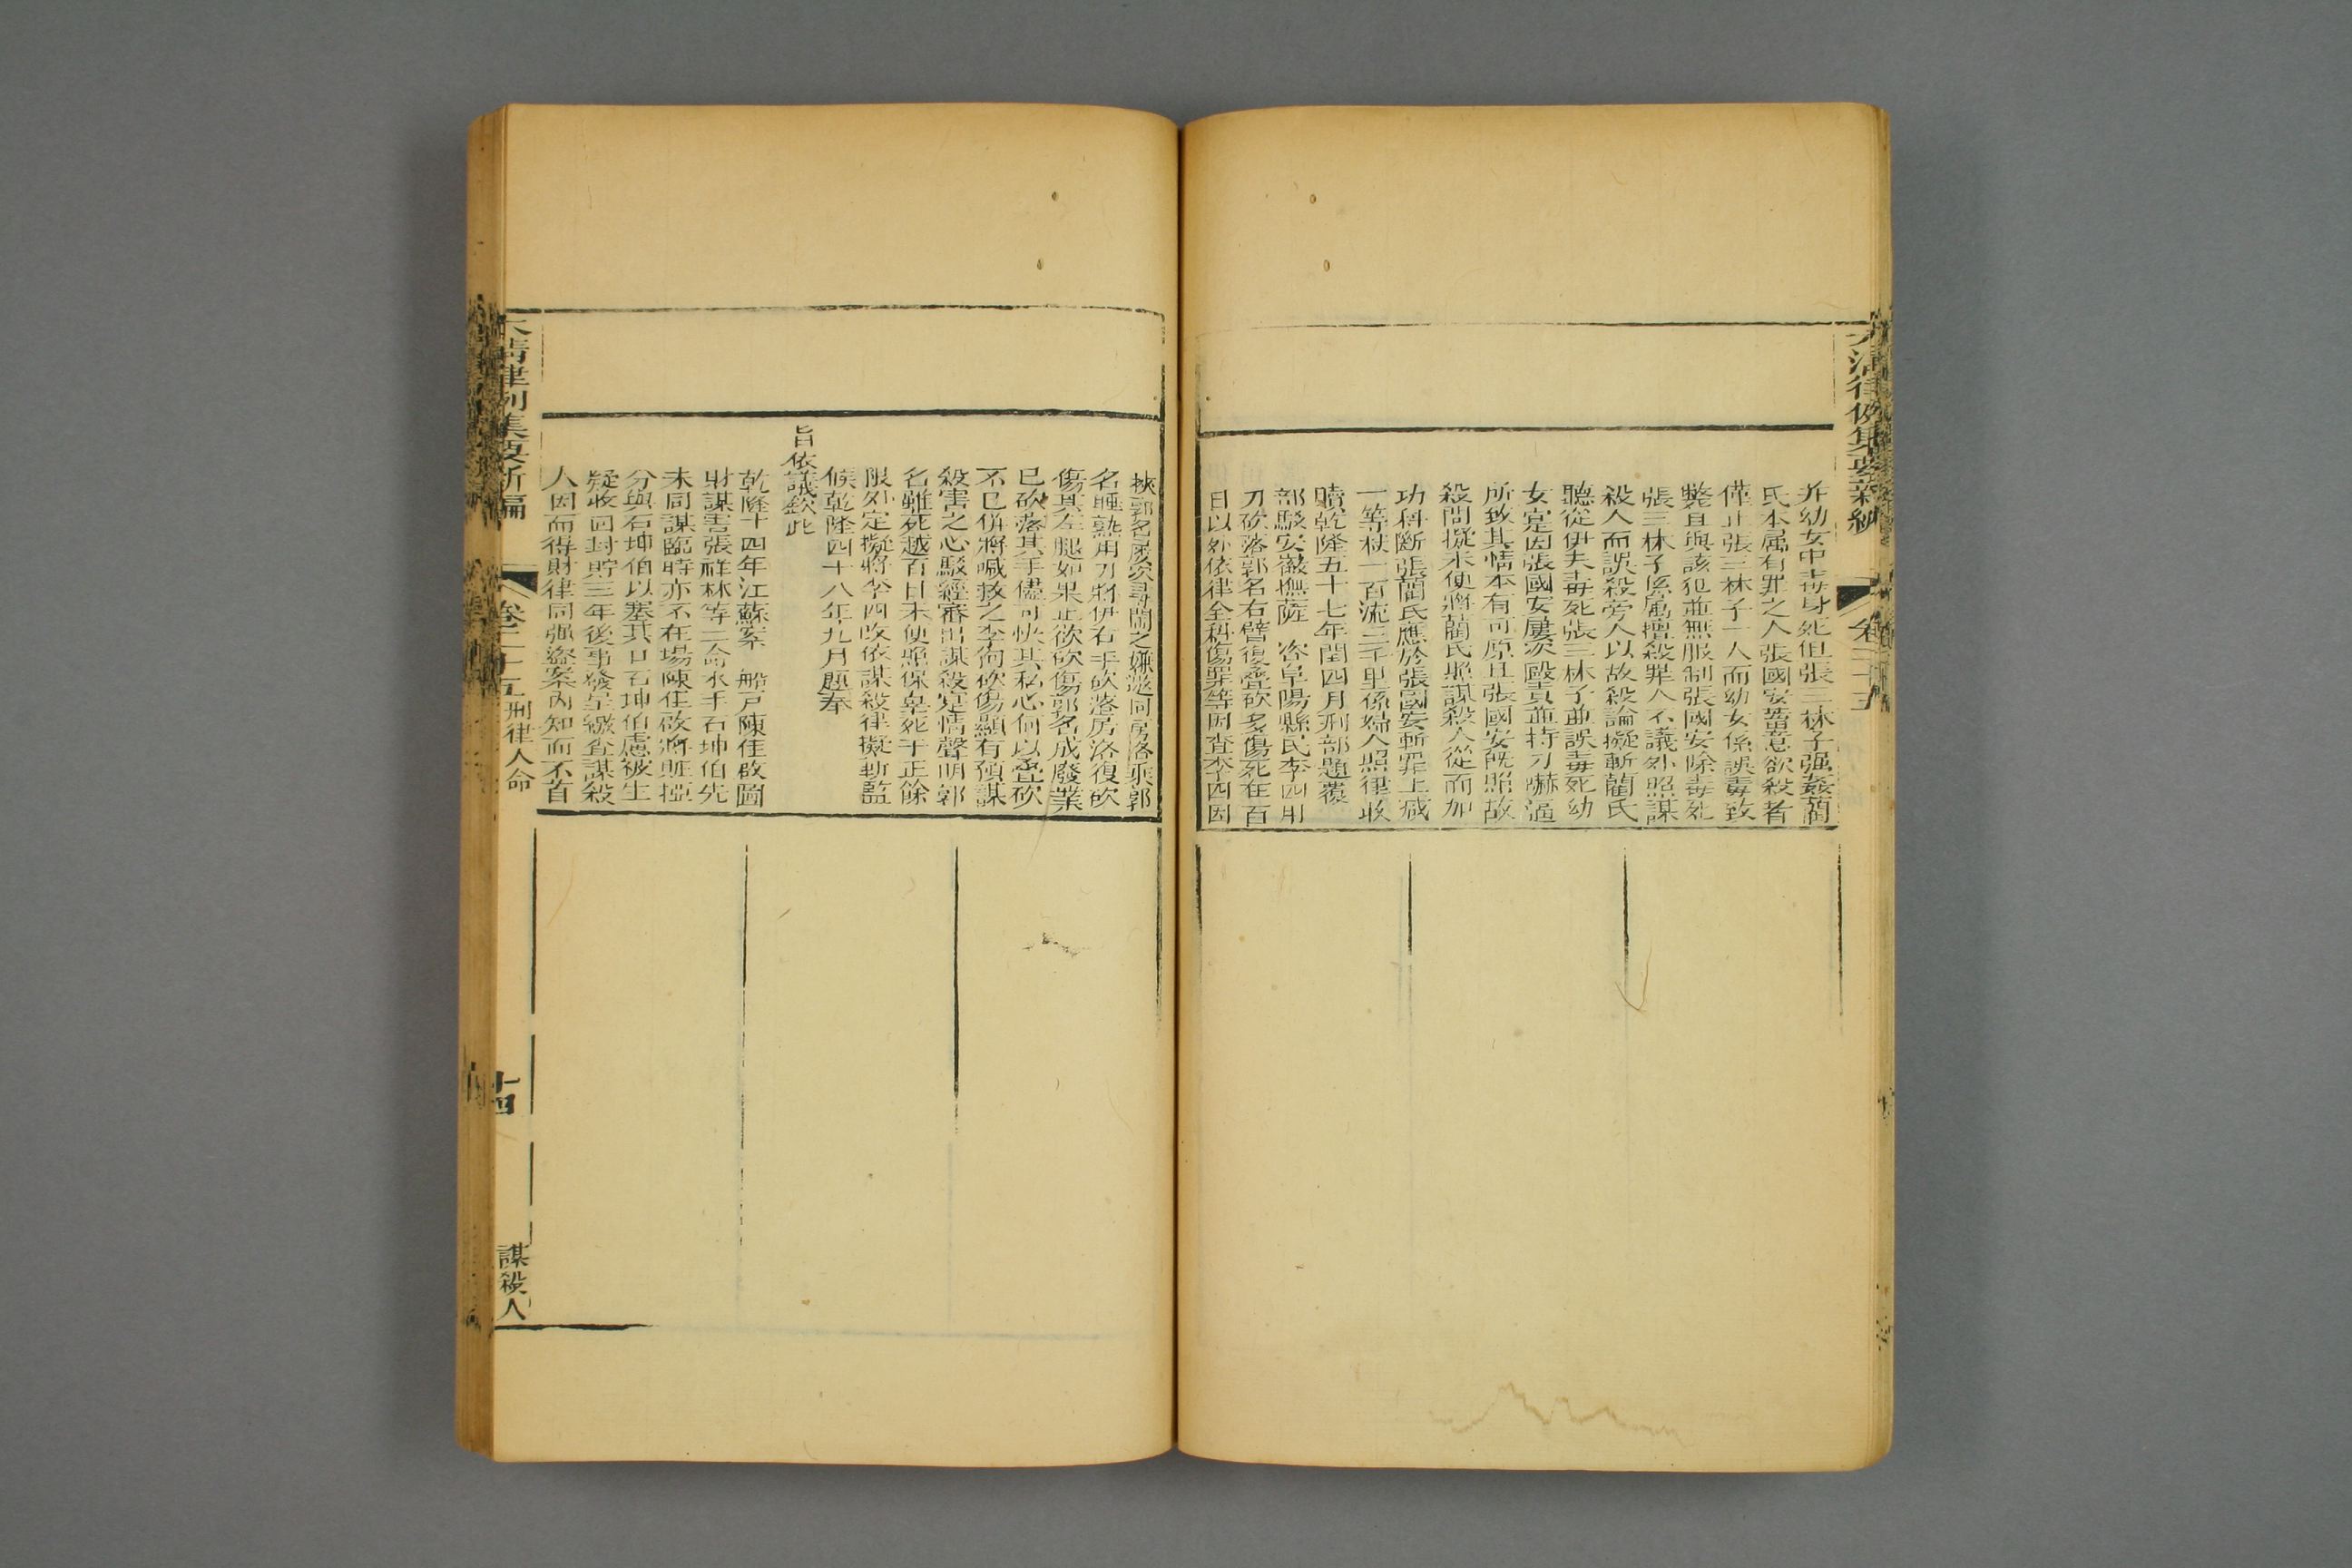 大清律例集要新編
卷二十五
并幼女中毒身死但張三林子强姦藺
氏本属有罪之人張國安蓄意欲殺者
僅止張三林子一人而幼女係誤毒致
斃且與該犯並無服制張國安除毒死
張三林子係属擅殺罪人不議外照謀
殺人而誤殺旁人以故殺論擬斬藺氏
聽從伊夫毒死張三林子並誤毒死幼
女寔因張國安屢次毆責並持刀嚇逼
所致其情本有可原且張國安既照故
殺問擬未便將藺氏照謀殺人從而加
功科斷張藺氏應於張國安斬罪上减
一等杖一百流三千里係婦人照律收
贖乾隆五十七年閏四月刑部題覆
部駁安徽撫薩 咨阜陽縣民李四用
刀砍落郭名右臂復疊砍多傷死在百
日以外依律全科傷罪等因查李四因
挾郭名屡次尋閙之嫌邀同房洛乘郭
名睡熟用刀將伊右手砍落房洛復砍
傷其左腿如果止欲砍傷郭名成廢業
已砍落其手儘可快其私心何以疊砍
不已併將喊救之李何砍傷顯有預謀
殺害之心駁經審出謀殺寔情聲明郭
名雖死越百日未便照保辜死于正餘
限外定擬將李四改依謀殺律擬斬監
候乾隆四十八年九月題奉
旨依議欽此
乾隆十四年江蘇案 船户陳隹啟圖
財謀害張祥林等二命水手石坤伯先
未同謀臨時亦不在塲陳隹啟將賍摳
分與石坤伯以塞其口石坤伯慮被生
疑收回封貯三年後事發呈繳查謀殺
人因而得財律同强盗案内知而不首
大清律例集要新編
卷二十五刑律人命
十四
謀殺人